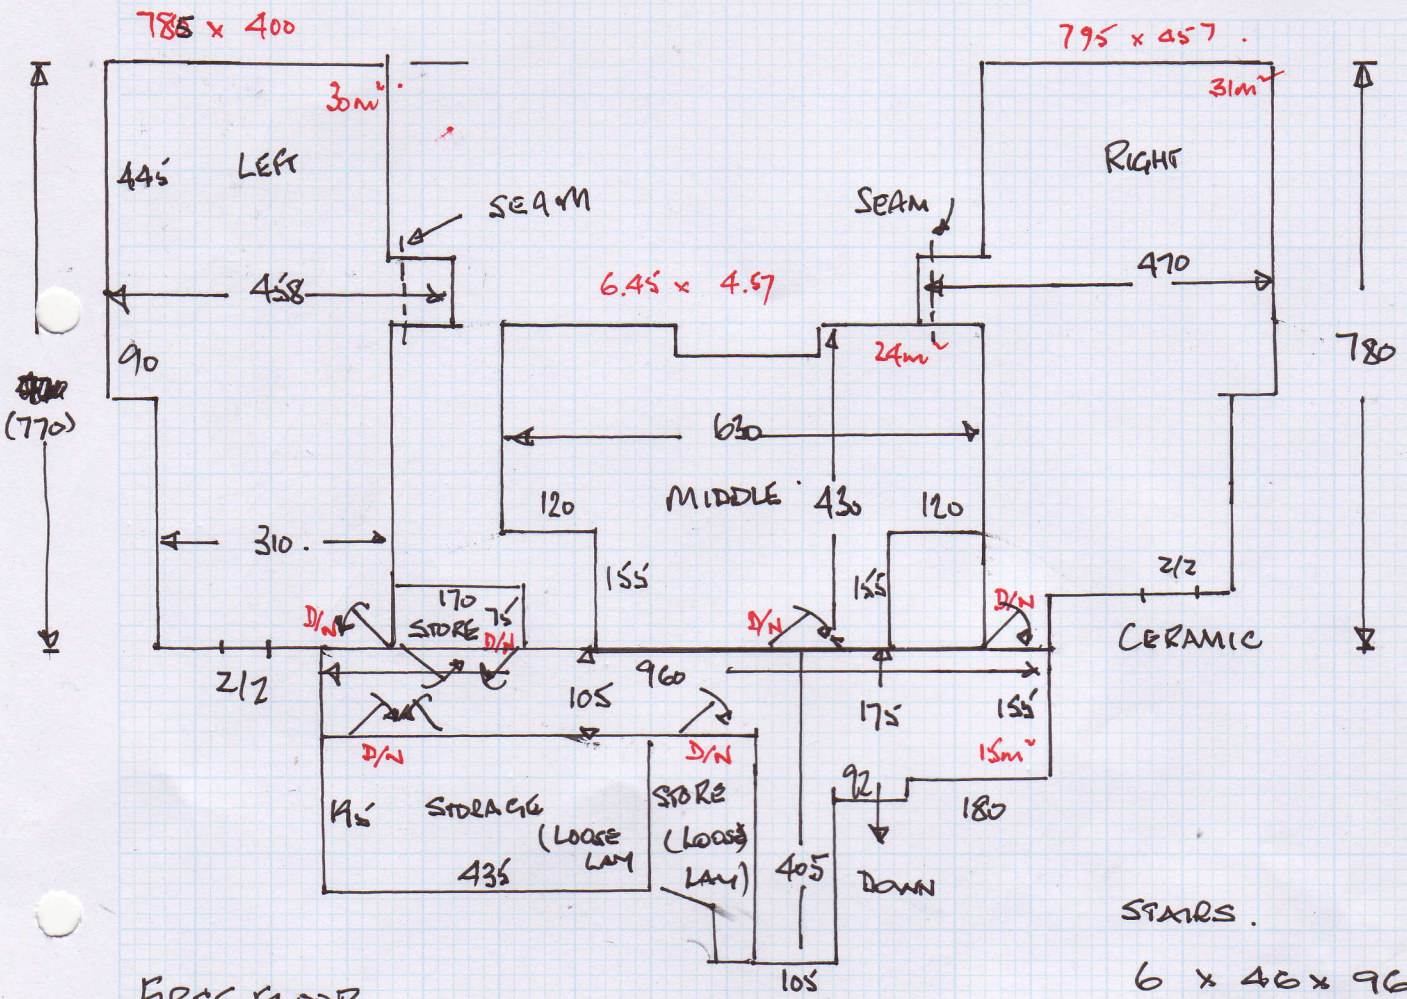 785 x 400
795 x 457.
30m²
31m²
LEFT
RIGHT
445
SEAM
SEAM
458
6.45 x 4.57
470
90
24m²
780
(770)
630
120
MIDDLE
430
120
310.
155
155
2/2
170
75
STORE
D/N
D/N
D/N
D/N
CERAMIC
2/2
960
105
175
155
D/N
D/N
15m²
92
195
STORAGE
(LOOSE
LAY
STORE
(LOOSE
LAY)
180
435
405
DOWN
STAIRS.
105
6 x 46 x 96